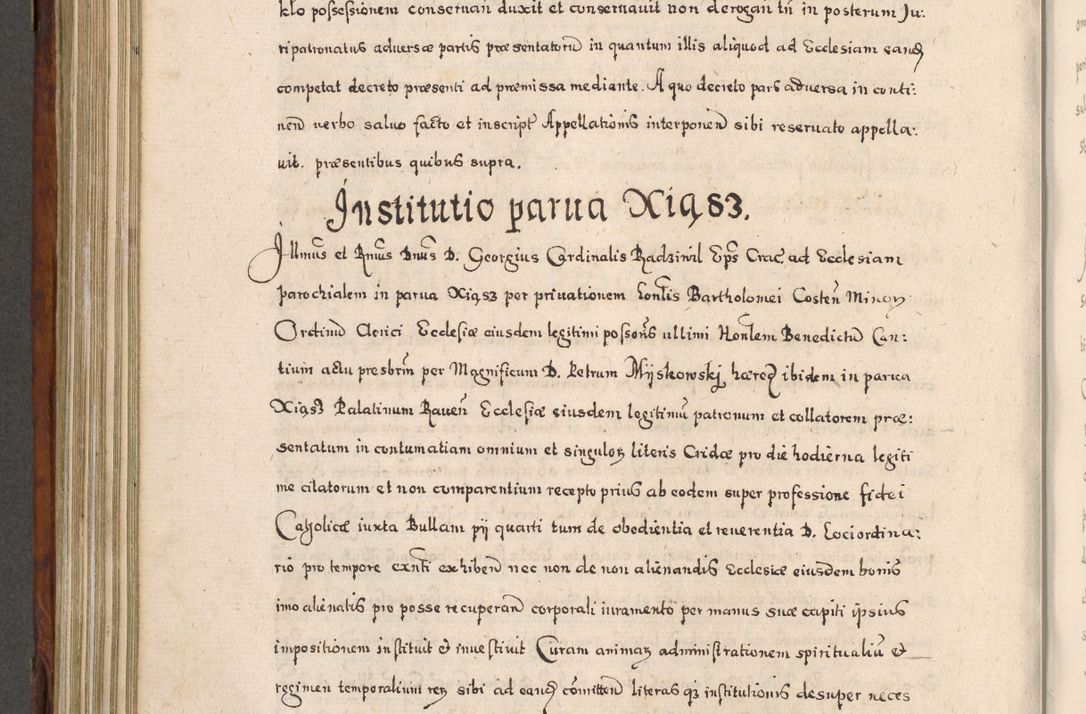 klo possessionem conseruan̄ duxit et conseruauit non derogan̄ tn̄ in posterum Ju:
ripationatus aduersæ partis præsentatorū in quantum illis aliquod ad Ecclesiam eandȩ
competat decreto præsenti ad præmissa mediante. A quo decreto pars aduersa in conti:
nen̄ verbo saluo facto et inscript Appellationis interponen̄ sibi reseruato appella:
uit. præsentibus quibus supra.
Institutio parua Xiąsz.
Illmūs et Rmūs Dnūs D. Georgius Cardinalis Radziwil Eps̄ Crac̄ ad Ecclesiam
parochialem in parua Xiąsz per priuationem honlis Bartholomei Costen̄ Minorȝ
Ordinū Clerici Ecclesiæ eiusdem legitimi possoris̄ ultimi Honlem Benedictū Can:
tium actu presbrm̄ per Magnificum D. Petrum Myskowskj hæredȩ ibidem in parua
Xiąsz Palatinum Rauen̄ Ecclesiæ eiusdem legitimū patronum et collatorem præ:
sentatum in contumatiam omnium et singulorȝ literis Cridæ pro die hodierna legiti
me citatorum et non comparentium recepto prius ab eodem super professione fidei
Catholicæ iuxta Bullam pij quarti tum de obedientia et reuerentia D. Lociordina:
rio pro tempore exn̄ti exhiben̄ nec non de non alienandis Ecclesiæ eiusdem bonis
imo alienatis pro posse recuperan̄ corporali iuramento per manus suæ capiti ipsius
impositionem instituit & inuestiuit Curam animarȝ administrationem spiritualiū &
regimen temporalium rerȝ sibi ad eandȩ com̄itten̄ literas qȝ institutionis desuper neces